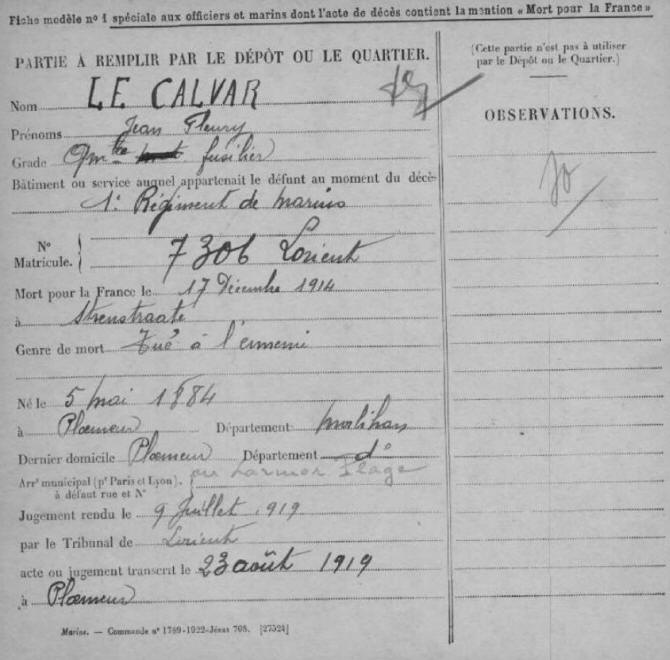 Fiche modèle n° 1 spéciale aux officiers et marins dont l'acte de décès contient la mention « Mort pour la France »
PARTIE A REMPLIR PAR LE DÉPÔT OU LE QUARTIER.
Nom LE CALVAR
Prénoms Jean Fleury
Grade Qm tre fusilier
Bâtiment ou service auquel appartenait le défunt au moment du décès
1er Régiment de marins
N° Matricule. 7306 Lorient
Mort pour la France le 17 Décembre 1914
à Steenstraate
Genre de mort Tué à l'ennemi
Né le 5 mai 1884
à Ploemeur Département Morbihan
Dernier domicile Ploemeur Département d°
ou Larmor Plage
Arrt municipal (pr Paris et Lyon).
à défaut rue et N°
Jugement rendu le 9 Juillet 1919
par le Tribunal de Lorient
acte ou jugement transcrit le 23 août 1919
à Ploemeur
Marine. — Commande n° 1789-1922-Jénas 708. [27524]
(Cette partie n'est pas à utiliser
par le Dépôt ou le Quartier.)
OBSERVATIONS.